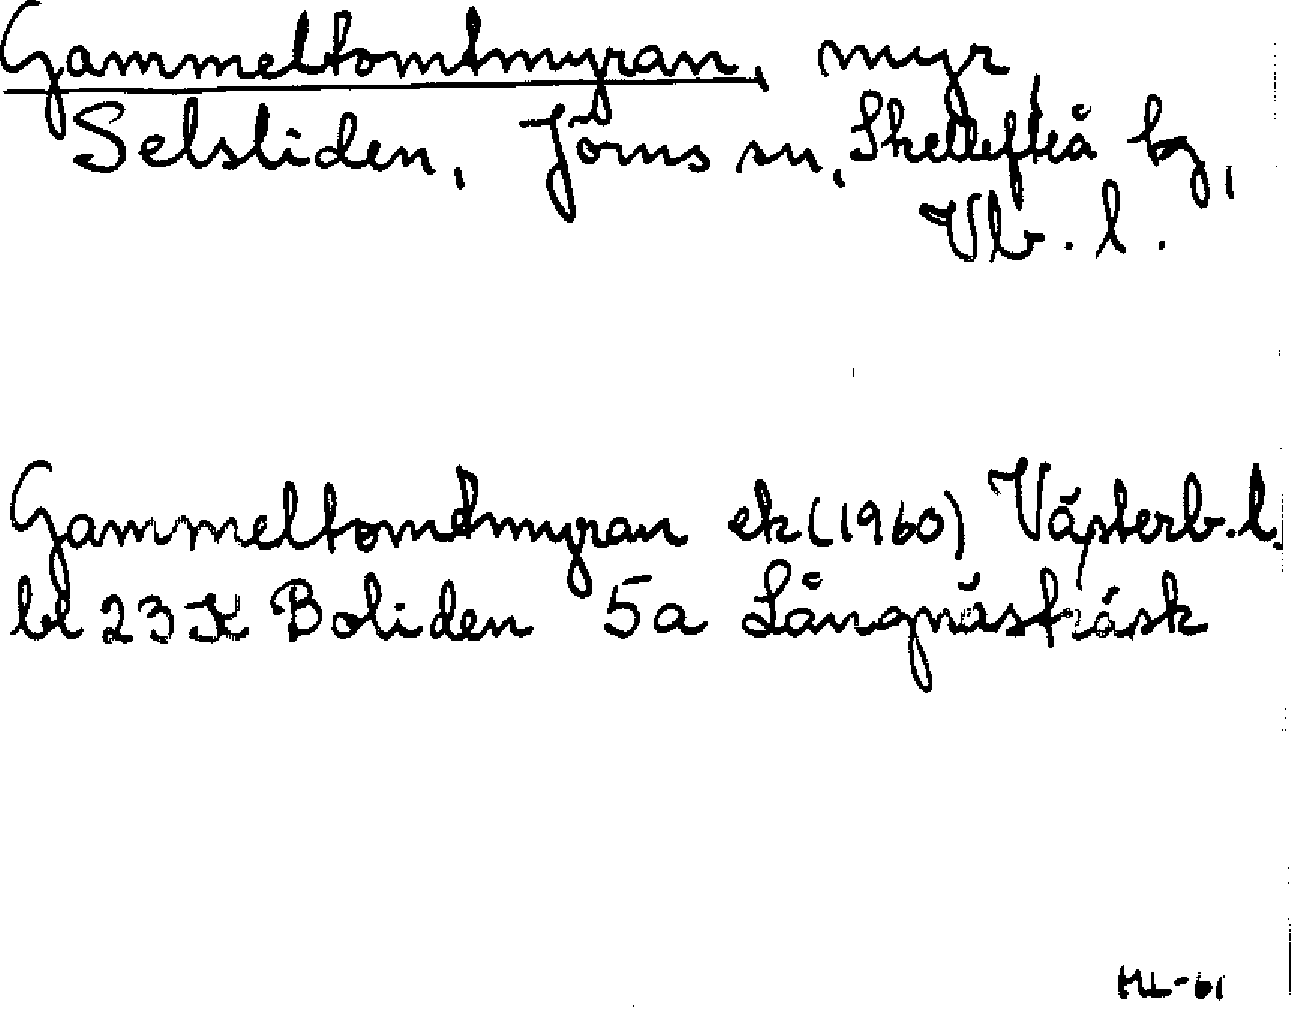 Gammeltomtmyran, myr
Selsliden, Jörns sn, Skellefteå kg,
Vb. l.
Gammeltomtmyran ek (1960) Västerb. l.
bl 23 K Boliden 5a Långnästräsk
HL-61